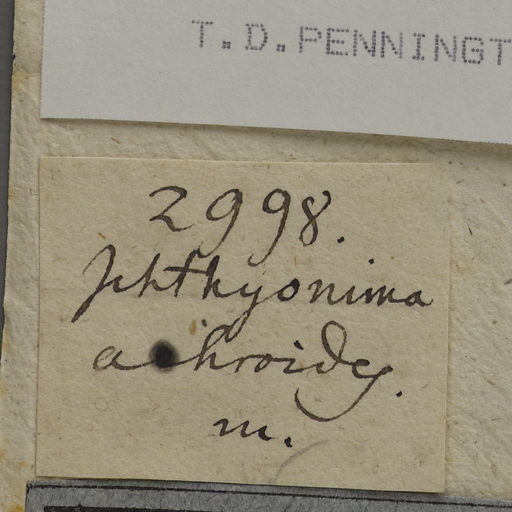 T.D.PENNINGT
2998.
Jchthyonima
a hroides.
m.